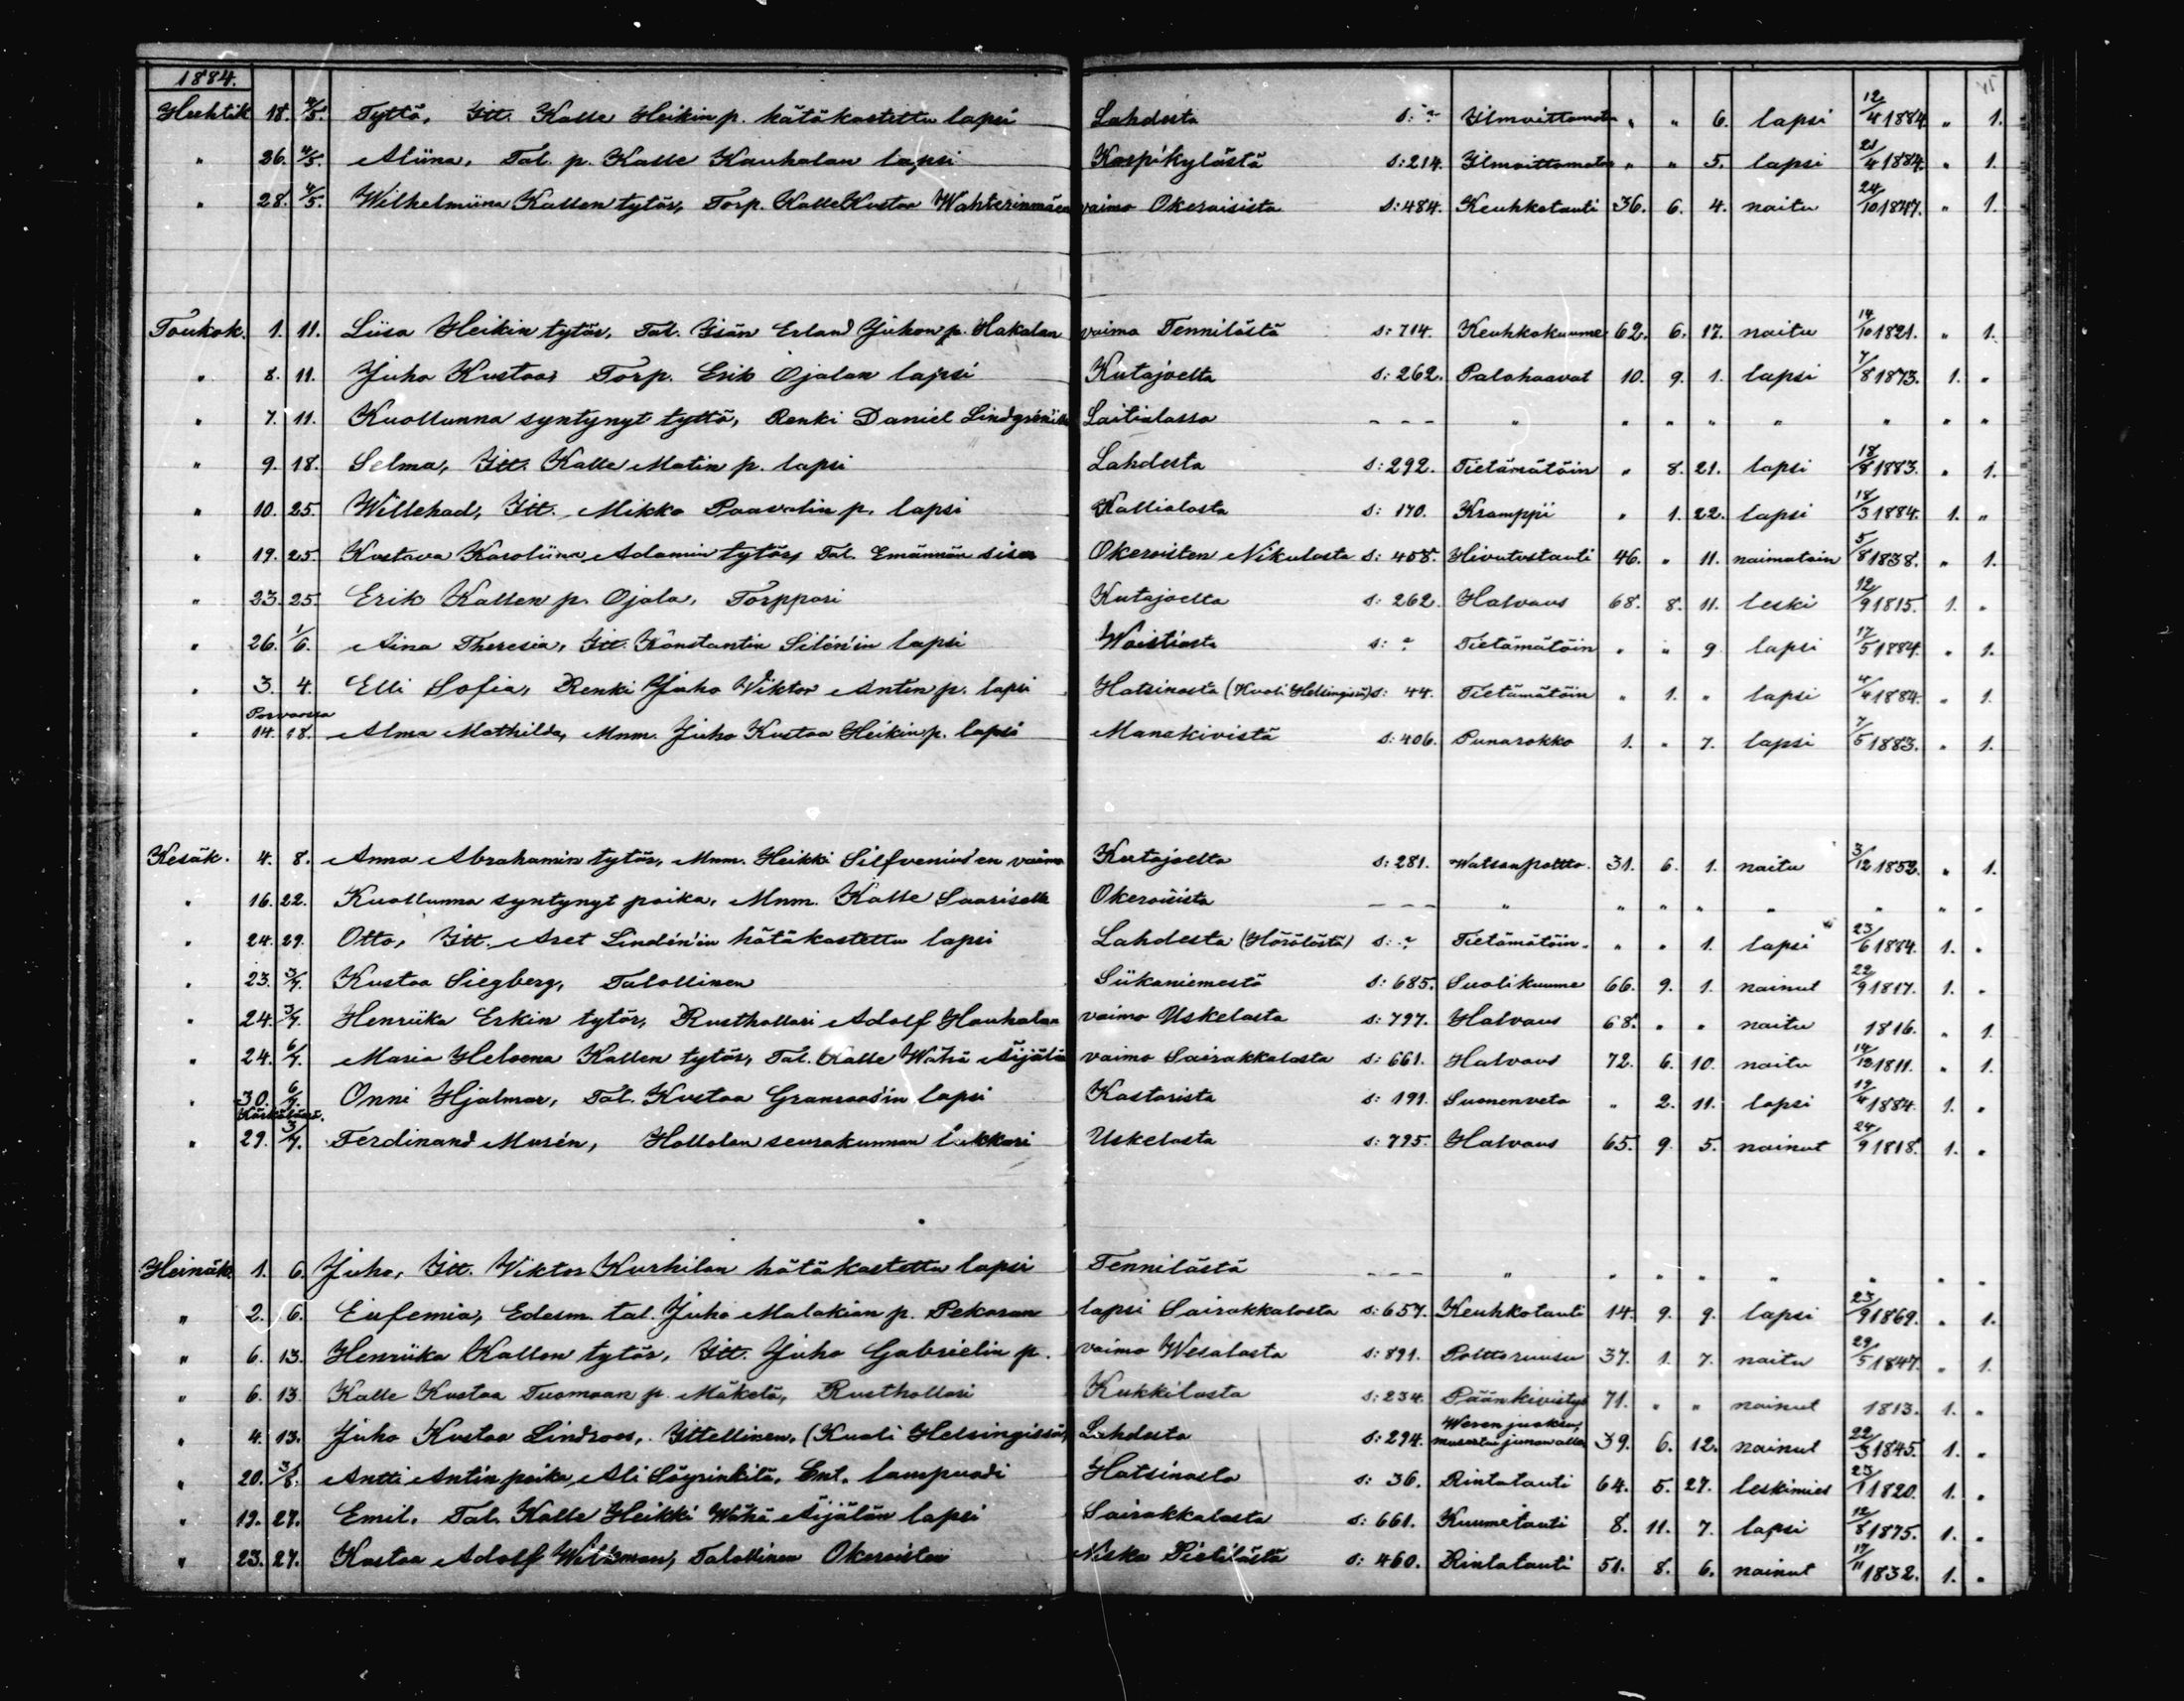 1884.
Huhtik. 18. 4/5. Tyttö, Itt. Kalle Heikin p. hätäkastettu lapsi Lahdesta s: " Ilmoittamata " " 6. lapsi 12/4 1884. " 1.
" 26. 4/5. Aliina, Tal. p. Kalle Kauhalan lapsi Kaspikylästä s: 214. Ilmoittamata " " 5. lapsi 21/4 1884. " 1.
" 28. 4/5. Wilhelmiina Kallen tytär, Torp. Kalle Kustaa Wahterinmäen vaimo Okeroisista s: 484. Keuhkotauti 36. 6. 4. naitu 24/10 1847. " 1.
Toukok. 1. 11. Liisa Heikin tytär, Tal. Isän Erland Juhon p. Hakalan vaimo Tennilästä s: 714. Keuhkokuume 62. 6. 17. naitu 14/10 1821. " 1.
" 8. 11. Juho Kustaa, Torp. Erik Ojalan lapsi Kutajoelta s: 262. Palohaavat 10. 9. 1. lapsi 7/8 1873. 1. "
" 7. 11. Kuollunna syntynyt tyttö, Renki Daniel Lindgrénille Laitialassa - - - " " " " " " " "
" 9. 18. Selma, Itt. Kalle Matin p. lapsi Lahdesta s: 292. Tietämätöin " 8. 21. lapsi 18/8 1883. " 1.
" 10. 25. Willehad, Itt. Mikko Paavalin p. lapsi Kalliolasta s: 170. Kramppi " 1. 22. lapsi 18/3 1884. 1. "
" 19. 25. Kustava Karoliina Adamin tytär, Tal. Emännän sisar Okeroisten Nikulasta s: 458. Hivutustauti 46. " 11. naimatoin 5/8 1838. " 1.
" 23. 25. Erik Kallen p. Ojala, Torppari Kutajoelta s: 262. Halvaus 68. 8. 11. leski 12/9 1815. 1. "
" 26. 1/6. Aina Theresia, Itt. Konstantin Silén'in lapsi Woistiosta s: " Tietämätöin " " 9 lapsi 17/5 1884. " 1.
" 3. 4. Elli Sofia, Renki Juho Viktor Antin p. lapsi Hatsinasta (Kuoli Helsingissä) s: 44. Tietämätöin " 1. " lapsi 4/4 1884. " 1.
Porvoossa
" 14. 18. Alma Mathilda, Mnm. Juho Kustaa Heikin p. lapsi Manskivistä s: 406. Punarokko 1. " 7. lapsi 7/5 1883. " 1.
Kesäk. 4. 8. Anna Abrahamin tytär, Mnm. Heikki Silfvenius'en vaimo Kutajoelta s: 281. Watsanpoltto. 31. 6. 1. naitu 3/12 1852. " 1.
" 16. 22. Kuollunna syntynyt poika, Mnm. Kalle Saariselle Okeroisista - - - " " " " " " " "
" 24. 29. Otto, Itt. Aset Lindén'in hätäkastettu lapsi Lahdesta (Härälästä) s: " Tietämätöin. " " 1. lapsi 23/6 1884. 1. "
" 23. 3/7. Kustaa Siegberg, Talollinen Siikaniemestä s: 685. Suolikuume 66. 9. 1. nainut 22/9 1817. 1. "
" 24. 3/7. Henriika Erkin tytär, Rusthollari Adolf Hauhalan vaimo Uskelasta s: 797. Halvaus 68. " " naitu 1816. " 1.
" 24. 6/7. Maria Heleena Kallen tytär, Tal. Kalle Wähä Äijälän vaimo Sairakkalasta s: 661. Halvaus 72. 6. 10. naitu 14/12 1811. " 1.
" 30. 6/7. Onni Hjalmar, Tal. Kustaa Granroos'in lapsi Kastarista s: 191. Suonenveto " 2. 11. lapsi 19/4 1884. 1. "
Kärkölässä.
" 29. 3/7. Ferdinand Musén, Hollolan seurakunnan lukkari Uskelasta s: 795. Halvaus 65. 9. 5. nainut 24/9 1818. 1. "
Heinäk. 1. 6. Juho, Itt. Viktor Kurhilan hätäkastettu lapsi Tennilästä - - - " " " " " " " "
" 2. 6. Eufemia, Edesm. tal. Juho Malakian p. Pekaran lapsi Sairakkalasta s: 657. Keuhkotauti 14. 9. 9. lapsi 23/9 1869. " 1.
" 6. 13. Henriika Kallen tytär, Itt. Juho Gabrielin p. vaimo Wesalasta s: 891. Polttoruusu 37. 1. 7. naitu 29/5 1847. " 1.
" 6. 13. Kalle Kustaa Tuomaan p. Mäkelä, Rusthollari Kukkilasta s: 234. Päänkivistys 71. " " nainut 1813. 1. "
" 4. 13. Juho Kustaa Lindroos, Ittellinen, (Kuoli Helsingissä) Lahdesta s: 294. Weren juoksu, musertui junan alle 39. 6. 12. nainut 22/3 1845. 1. "
" 20. 3/8. Antti Antin poika Ali Löyrinkilä, Ent. lampuodi Hatsinasta s: 36. Rintatauti 64. 5. 27. leskimies 23/1 1820. 1. "
" 19. 27. Emil, Tal. Kalle Heikki Wähä Äijälän lapsi Sairakkalasta s: 661. Kuumetauti 8. 11. 7. lapsi 12/8 1875. 1. "
" 23. 27. Kustaa Adolf Wikman, Talollinen Okeroisten Niska Pietilästä s: 460. Rintatauti 51. 8. 6. nainut 17/11 1832. 1. "